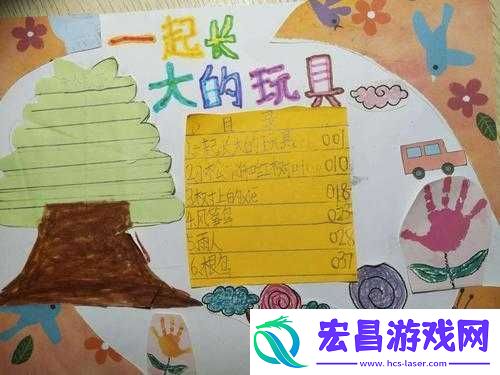 一起长
大的玩具
目录
1.一起长大的玩具 001
010
3.树上的 018
4.风筝 023
5.雨人 028
6.根 037
宏昌游戏网
www.hcs-laser.com